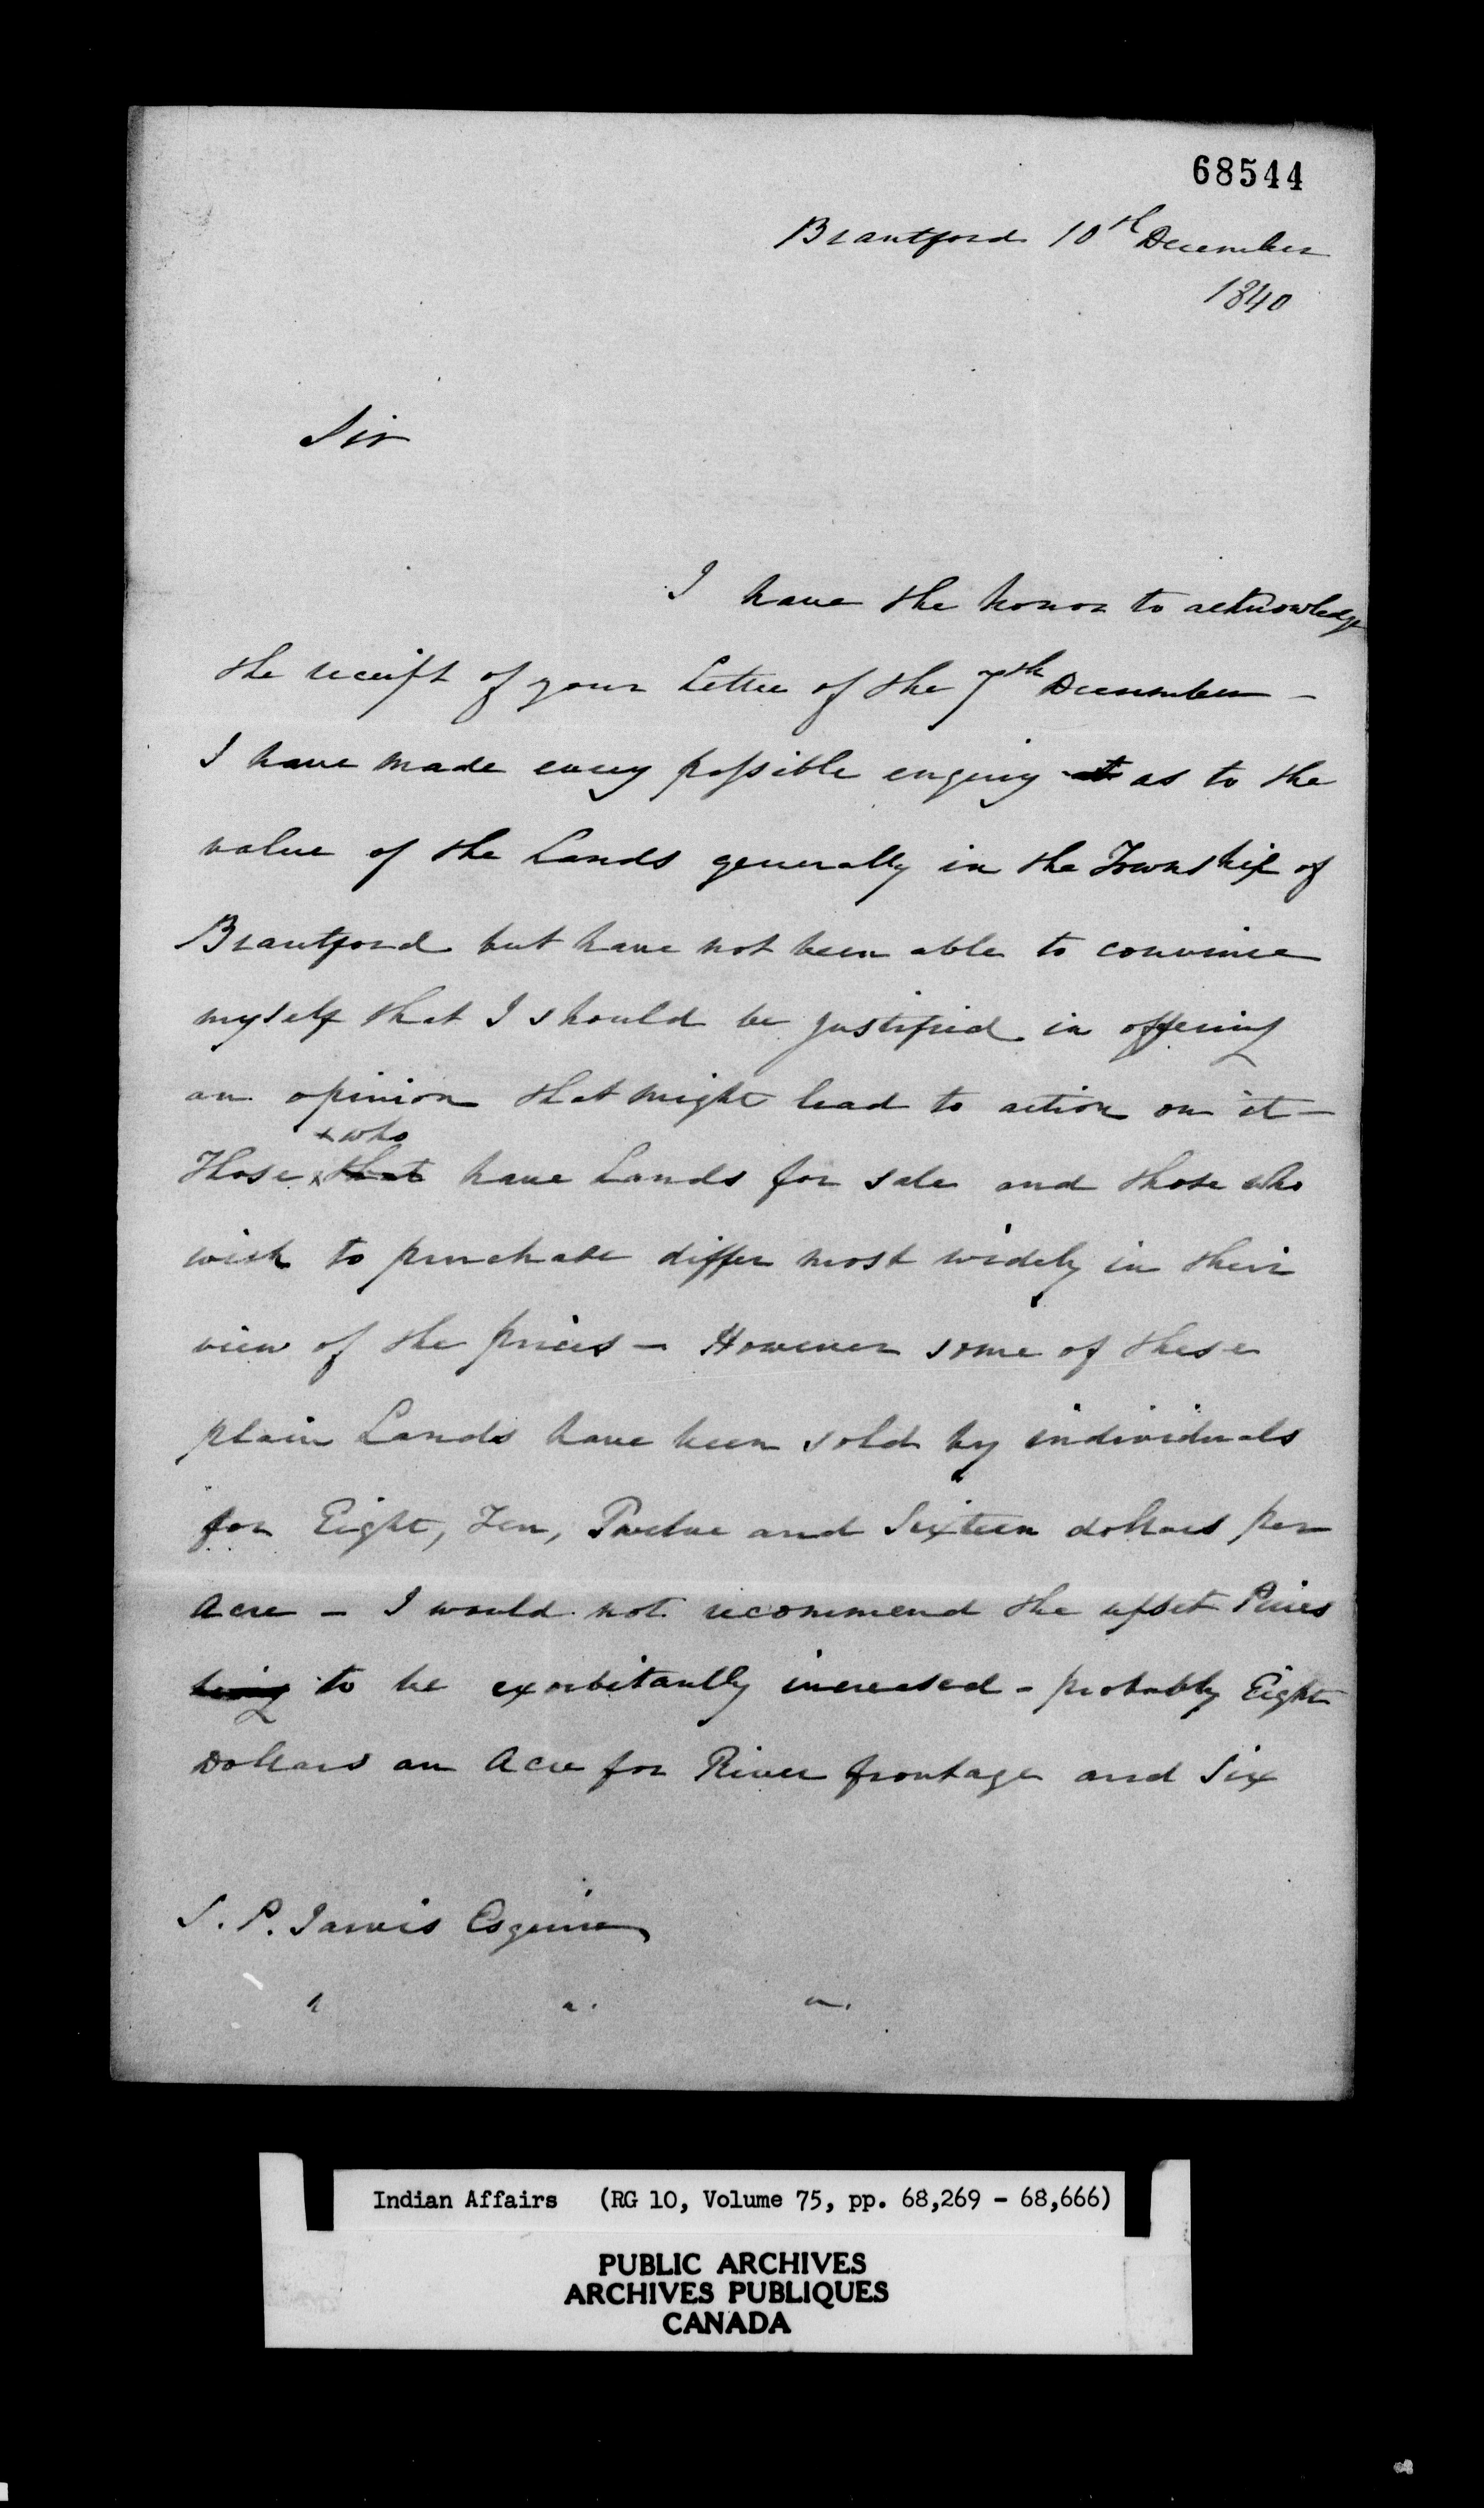 68544
Brantford 10th December
1840
Sir
I have the honor to acknowledge
the receipt of your Letter of the 7th December -
I have made every possible enquiry as to the
value of the Lands generally in the Township of
Brantford but have not been able to convince
myself that I should be justified in offering
an opinion that might lead to action on it -
x who
Those x that have Lands for sale and those who
wish to purchase differ most widely in their
view of the prices - However some of these
plain Lands have been sold by individuals
for Eight, Ten, Twelve and Sixteen dollars per
Acre - I would not recommend the upset Prices
being to be exorbitantly increased - probably Eight
Dollars an Acre for River frontage and Six
S. P. Jarvis Esquire
Indian Affairs (RG 10, Volume 75, pp. 68,269 - 68,666)
PUBLIC ARCHIVES
ARCHIVES PUBLIQUES
CANADA